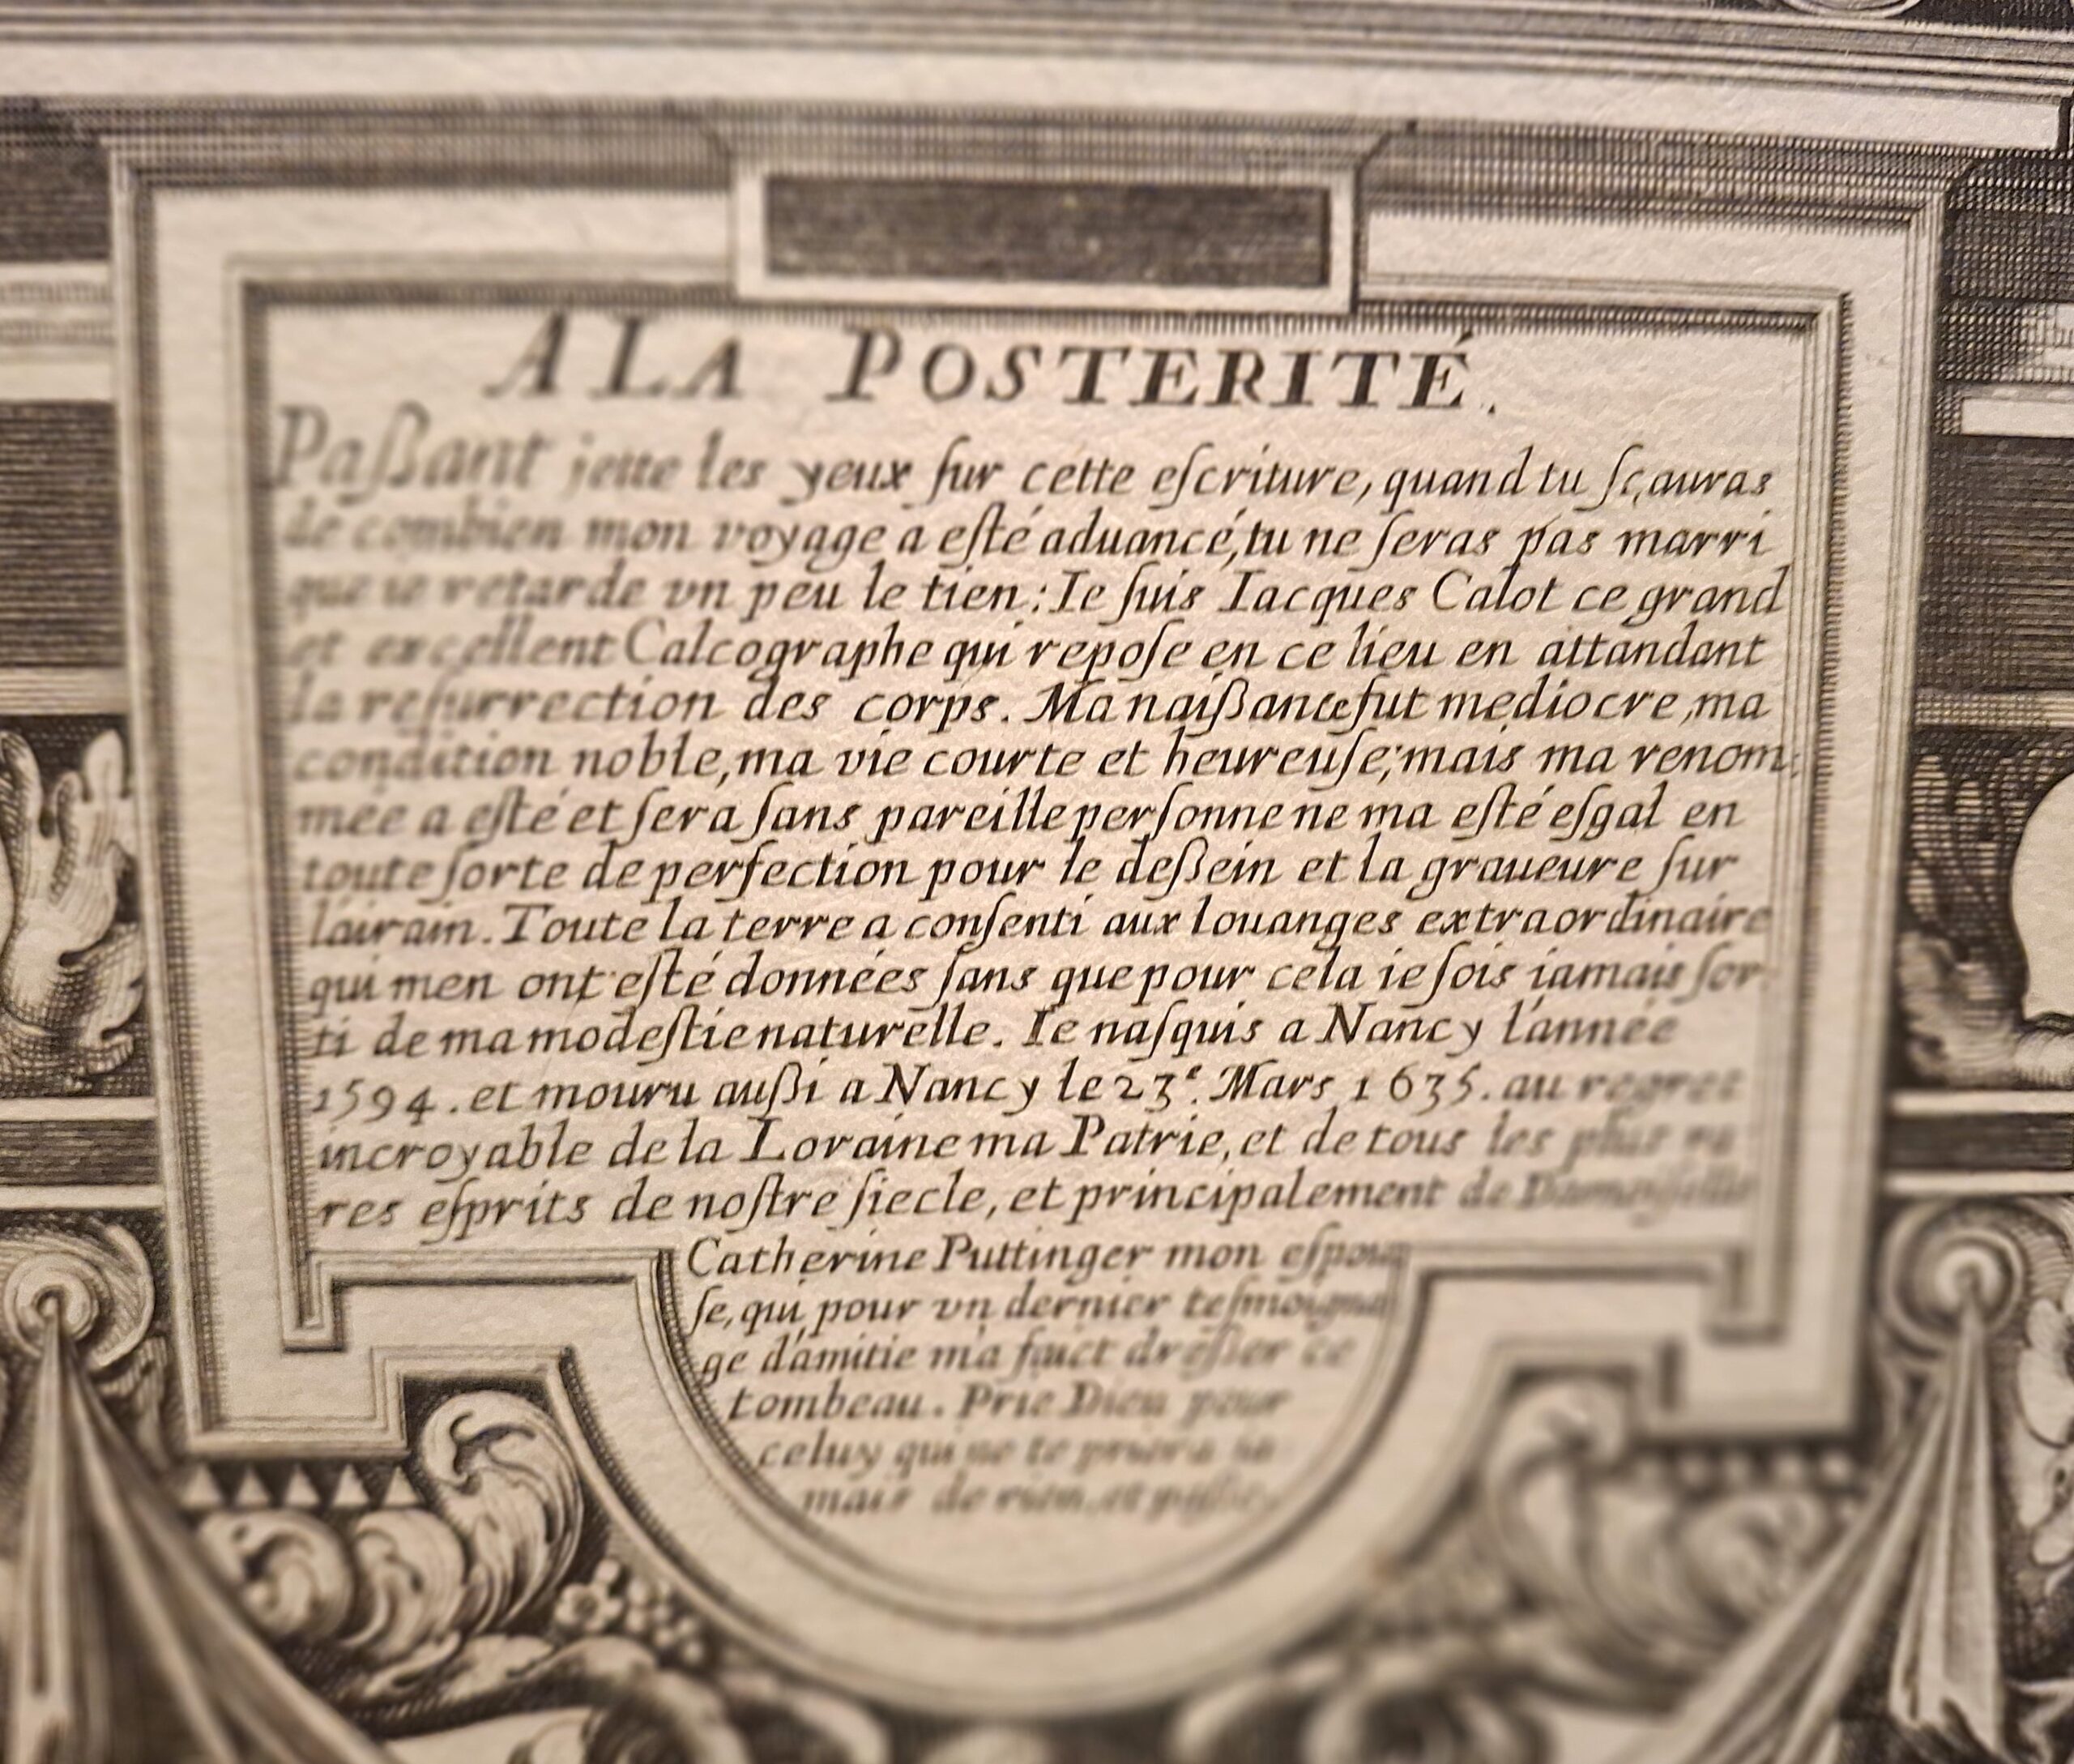 A LA POSTERITÉ.
Paßant jette les yeux ſur cette eſcriture, quand tu ſçauras
de combien mon voyage a eſté aduancé, tu ne ſeras pas marri
que ie retarde vn peu le tien: Ie ſuis Iacques Calot ce grand
et excellent Calcographe qui repoſe en ce lieu en attandant
la reſurrection des corps. Ma naißance fut mediocre, ma
condition noble, ma vie courte et heureuſe; mais ma renom-
mée a eſté et ſera ſans pareille perſonne ne ma eſté eſgal en
toute ſorte de perfection pour le deßein et la graueure ſur
lairain. Toute la terre a conſenti aux louanges extraordinaire
qui men ont eſté données ſans que pour cela ie ſois iamais ſor-
ti de ma modeſtie naturelle. Ie naſquis a Nancy l'année
1594. et mouru außi a Nancy le 23e. Mars 1635. au regret
incroyable de la Loraine ma Patrie, et de tous les plus ra
res eſprits de noſtre ſiecle, et principalement de Damoyſelle
Catherine Puttinger mon eſpou
ſe, qui pour vn dernier teſmoigna
ge d'amitie m'a faict dreſſer ce
tombeau. Prie Dieu pour
celuy qui ne te priera ia
mais de rien, et paſſe.